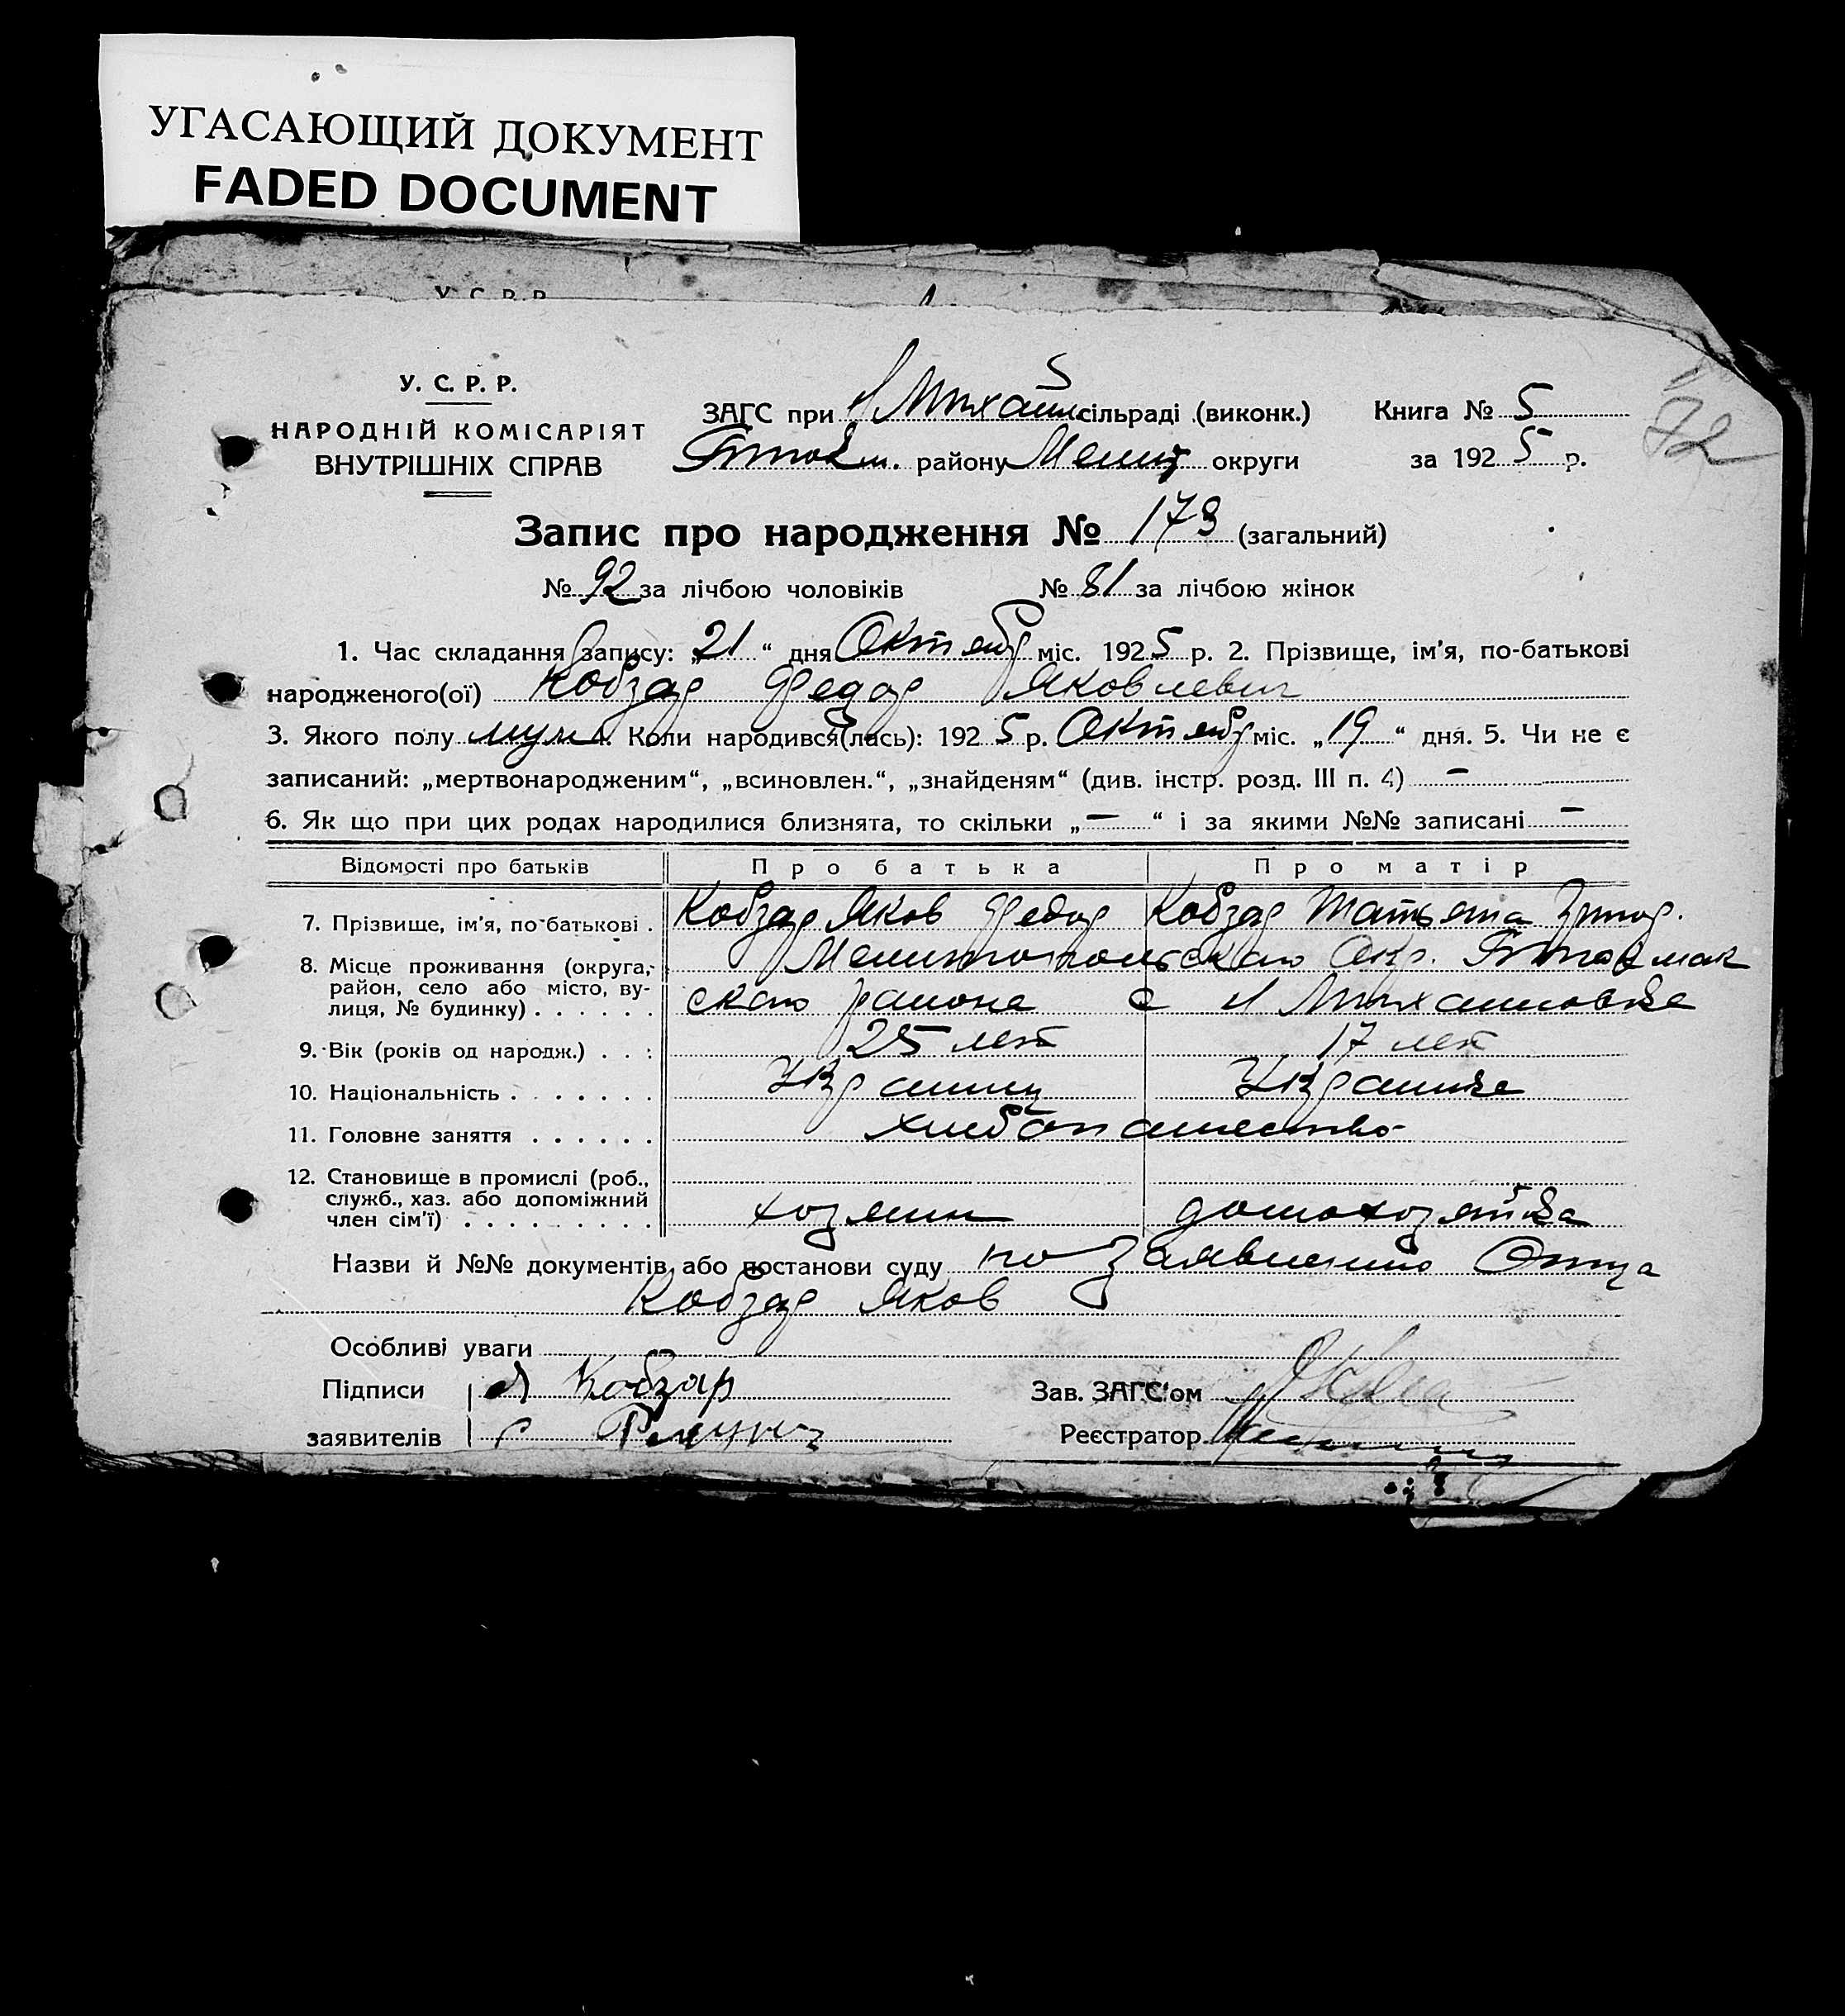 УГАСАЮЩИЙ ДОКУМЕНТ
FADED DOCUMENT
У. С. Р. Р.
У. С. Р. Р.
НАРОДНІЙ КОМІСАРІЯТ
ВНУТРІШНІХ СПРАВ
ЗАГС при Михайл. сільраді (виконк.)
району Мелит округи
Книга № 5
за 1925 р.
72
Запис про народження № 173 (загальний)
№ 92 за лічбою чоловіків № 81 за лічбою жінок
1. Час складання запису: „21“ дня Октябр міс. 1925 р. 2. Прізвище, ім'я, по-батькові
народженого(ої) Кобзар Федор Яковлевич
3. Якого полу муж. Коли народився(лась): 1925 р. Октябр міс. „19“ дня. 5. Чи не є
записаний: „мертвонародженим“, „всиновлен.“, „знайденям“ (див. інстр. розд. III п. 4) —
6. Як що при цих родах народилися близнята, то скільки „—“ і за якими №№ записані —
Відомості про батьків Про батька Про матір
7. Прізвище, ім'я, по-батькові . Кобзар Яков Федор Кобзар Татьяна Григор.
8. Місце проживання (округа, район, село або місто, вулиця, № будинку) . . . . . .
Мелитопольскаго Окр.
скаго района с Михайловка
9. Вік (років од народж.) . . . 25 лет 17 лет
10. Національність . . . . . . . Украинц Украинка
11. Головне заняття . . . . . . хлебопашество
12. Становище в промислі (роб., служб., хаз. або допоміжний член сім'ї) . . . . . . . . .
хозяин домохозяйка
Назви й №№ документів або постанови суду по заявлению Отца
Кобзар Яков
Особливі уваги
Підписи Кобзар
заявителів
Зав. ЗАГС'ом
Реєстратор